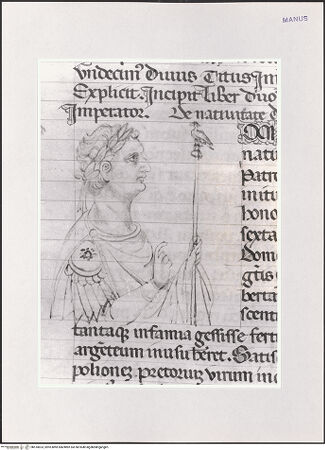 MANUS
Vndecim⁹ Diuus Titus Im
Explicit. Incipit liber duo
Imperator. De natiuitate d
natiu
Patre
in itu
hono
sexta
Dom
gt̄is
berta
scent
tantaq̨ infamia gessisse fert
argēteum in usu h̄eret. Satis
polionez pretoruz virum in